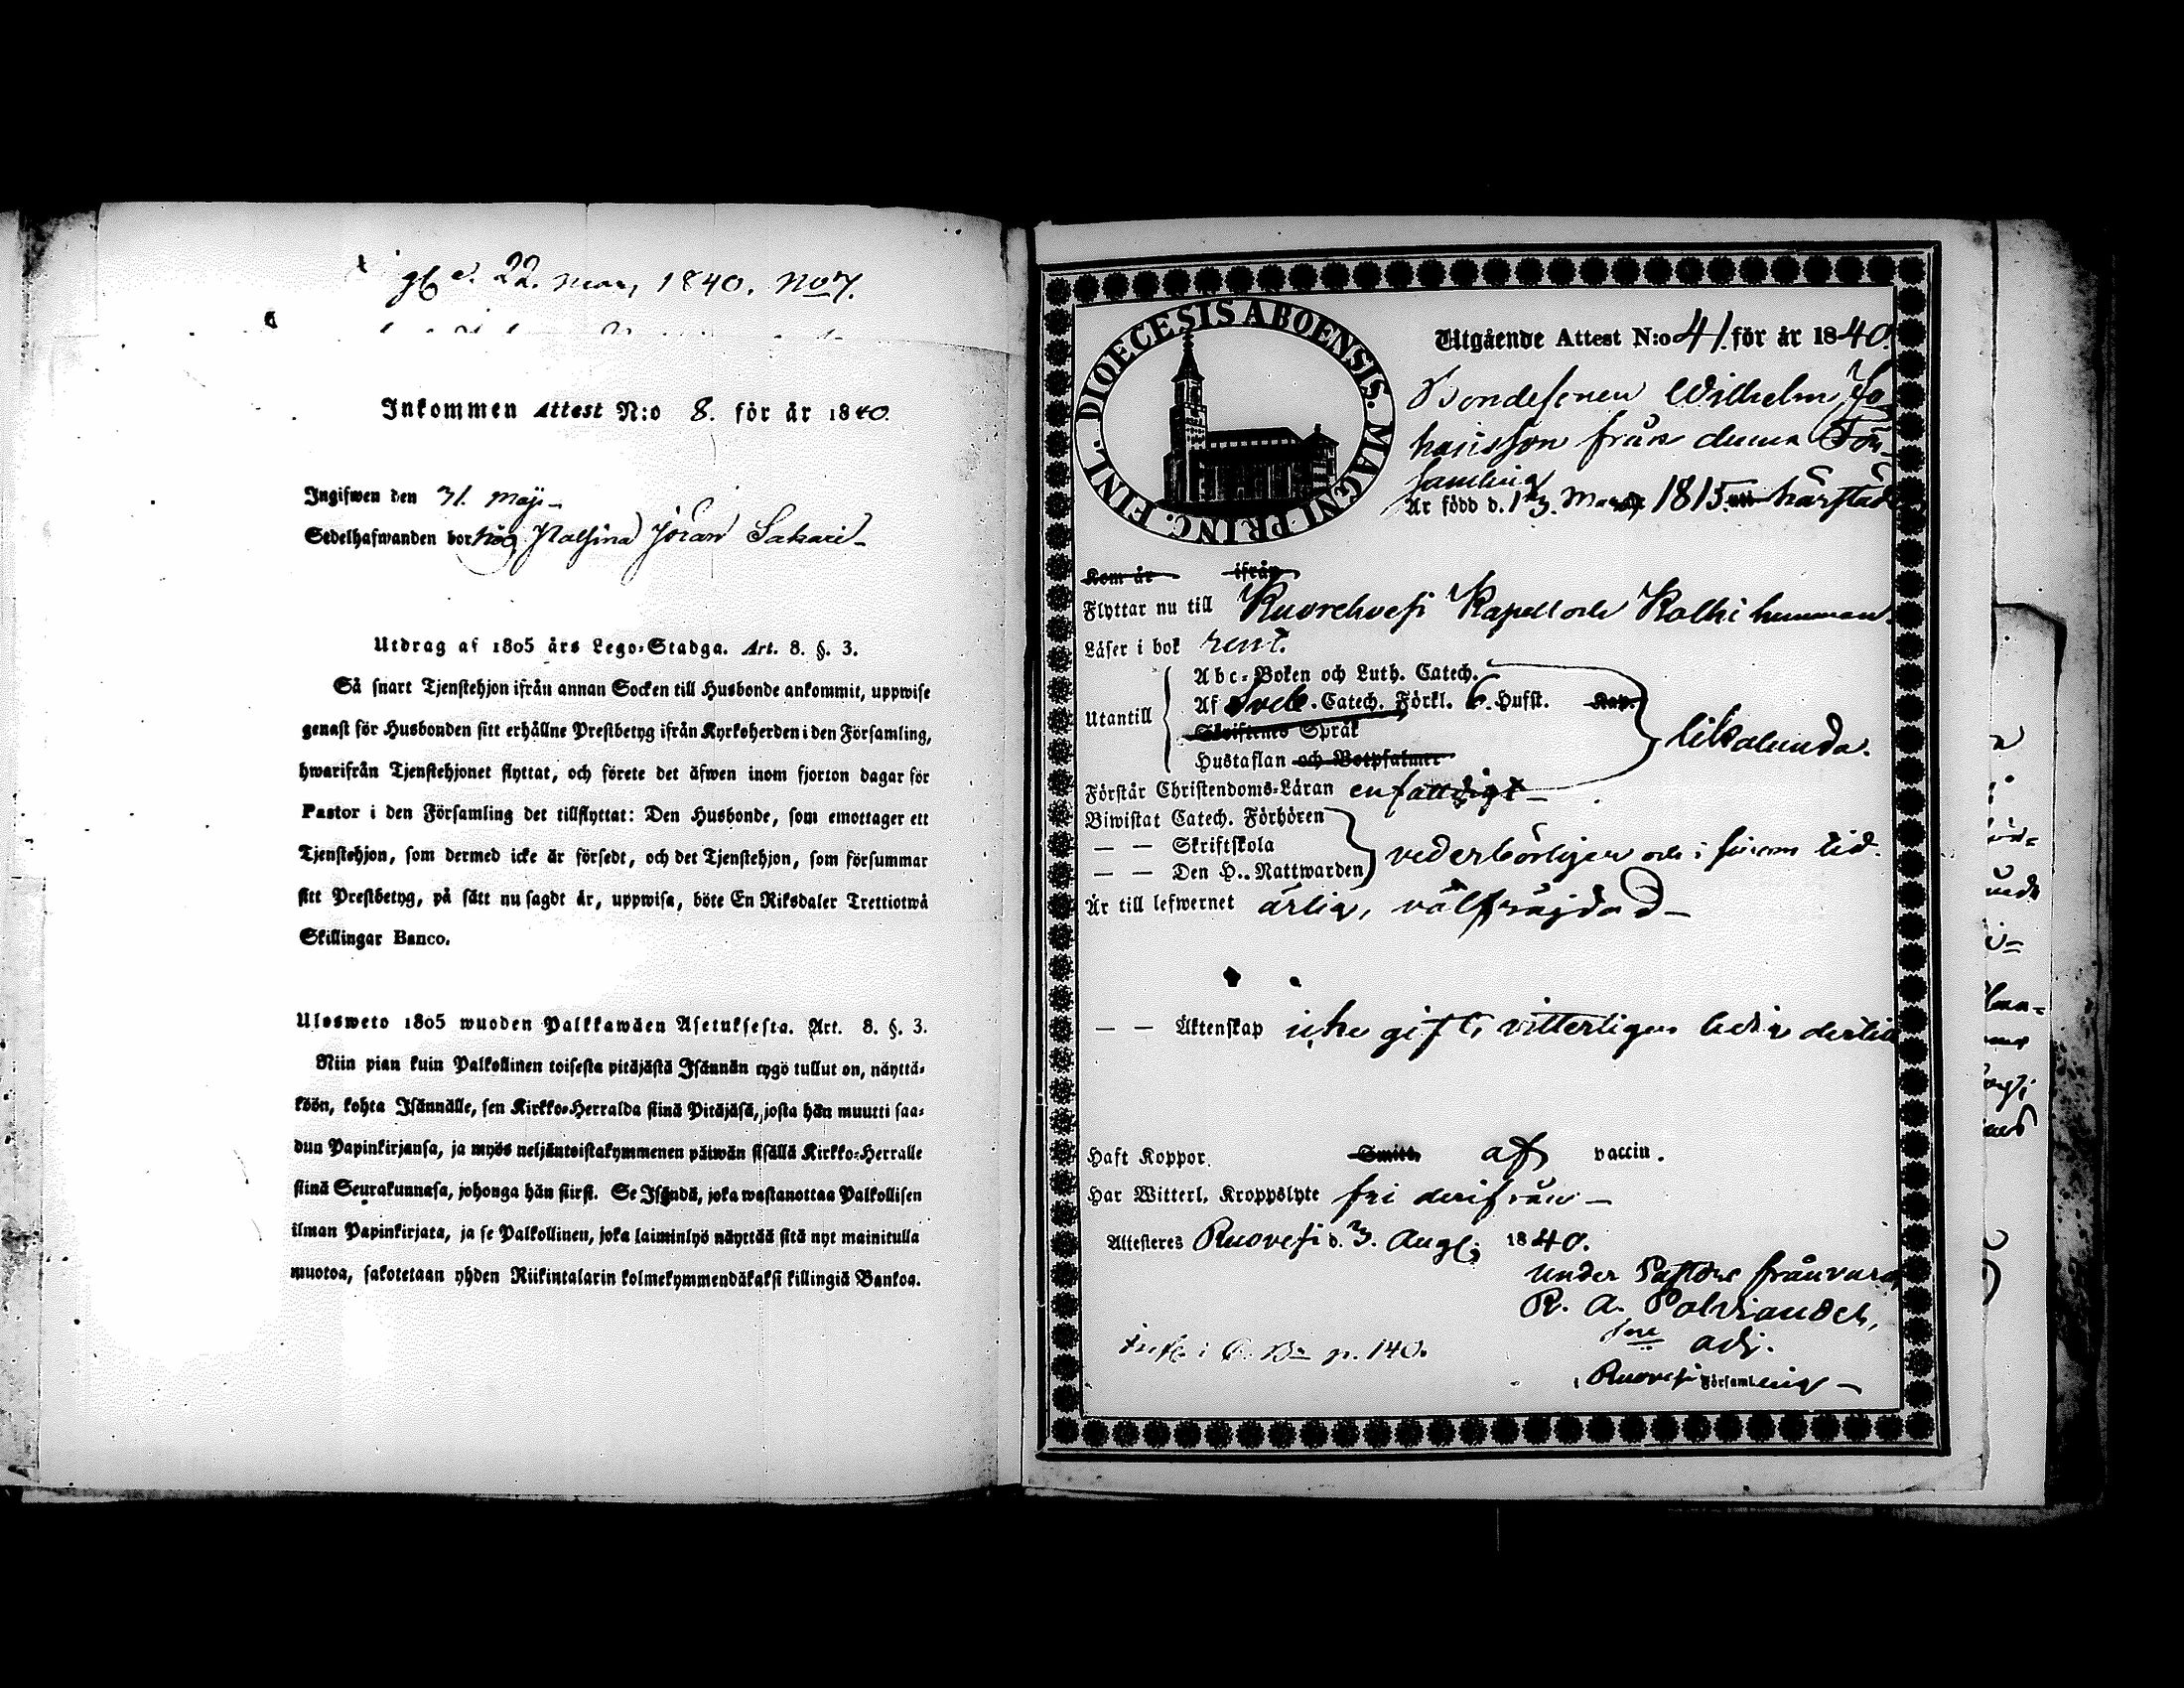 d. 22. Marz, 1840. No 7.
Inkommen Attest N:o 8. för år 1840.
Ingifwen den 31. Maji
Sedelhafwanden bor hos Jöran Sakari
Utdrag af 1805 års Lego-Stadga. Art. 8. §. 3.
Så snart Tjenstehjon ifrån annan Socken till Husbonde ankommit, uppwise
genast för Husbonden sitt erhållne Prestbetyg ifrån Kyrkoherden i den Församling,
hwarifrån Tjenstehjonet flyttat, och förete det äfwen inom fjorton dagar för
Pastor i den Församling det tillflyttat: Den Husbonde, som emottager ett
Tjenstehjon, som dermed icke är försedt, och det Tjenstehjon, som försummar
sitt Prestbetyg, på sätt nu sagdt är, uppwisa, böte En Riksdaler Trettiotwå
Skillingar Banco.
Ulosweto 1805 wuoden Palkkawäen Asetuksesta. Art. 8. §. 3.
Niin pian kuin Palkollinen toisesta pitäjästä Isännän tygö tullut on, näyttä-
köön, kohta Isännälle, sen Kirkko-Herralda siinä Pitäjäsä, josta hän muutti saa-
dun Papinkirjansa, ja myös neljäntoistakymmenen päiwän sisällä Kirkko-Herralle
siinä Seurakunnasa, johonga hän siirsi. Se Isändä, joka wastanottaa Palkollisen
ilman Papinkirjata, ja se Palkollinen, joka laiminlyö näyttää sitä nyt mainitulla
muotoa, sakotetaan yhden Riikintalarin kolmekymmendäkaksi killingiä Bankoa.
DIOECESIS ABOENSIS. MAGNI PRINC. FINL.
Utgående Attest N:o 41. för år 1840.
Bondesonen Wilhelm Jo-
hansson från denna För-
samling
Är född d. 13. Mars 1815. härstäd
Kom år ifrån
Flyttar nu till Kuorehvesi Kapell och Kolhi hemman.
Läser i bok rent.
Abc-Boken och Luth. Catech.
Af Sveb. Catech. Förkl. 6. Hufst. Kap.
Utantill
Skriftenes Språk
likalunda.
Hustaflan och Botpsalmer
Förstår Christendoms-Läran enfaldigt
Biwistat Catech. Förhören
— — Skriftskola
vederbörligen och i sinom tid.
— — Den H. Nattwarden
Är till lefwernet ärlig, välfräjdad
— — Äktenskap icke gift, vitterligen ledig dertill
Haft Koppor. Smitt. af vaccin.
Har Witterl. Kroppslyte fri derifrån
Attesteres Ruovesi d. 3. Aug. 1840.
under Pastors frånvaro
R. A. Polviander,
adj.
infl. i C. B. p. 140.
i Ruovesi Församling